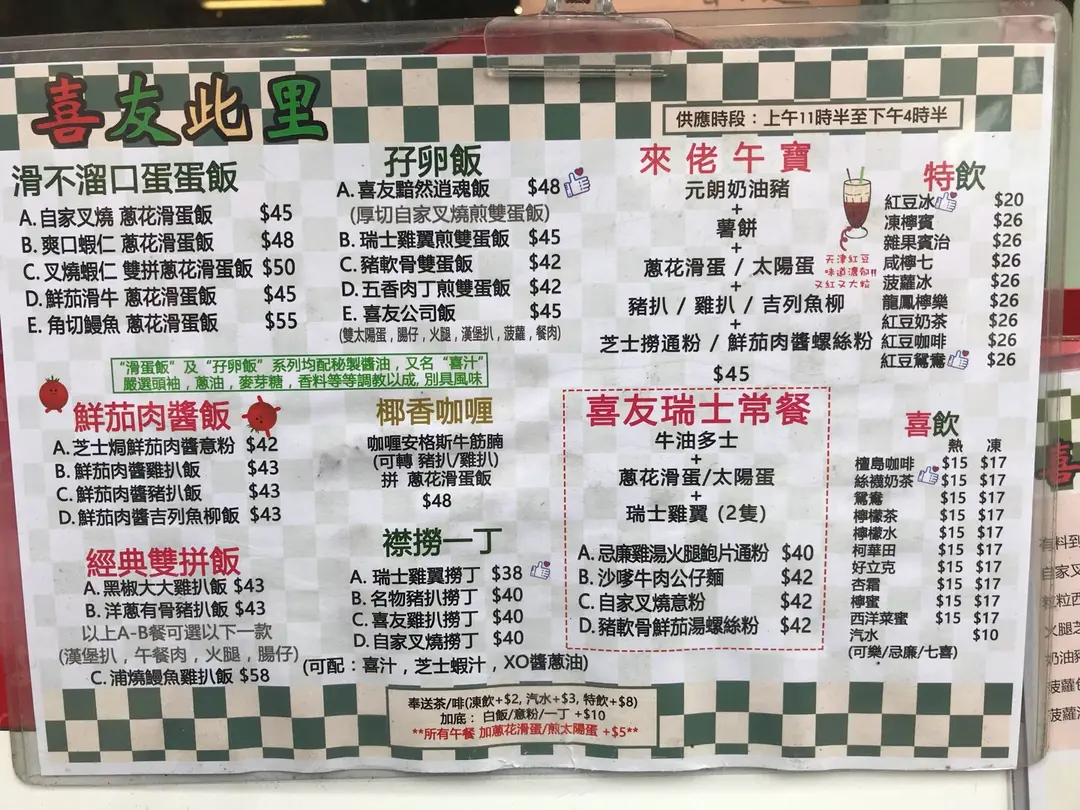 喜友此里
供應時段：上午11時半至下午4時半
滑不溜口蛋蛋飯
A.自家叉燒 蔥花滑蛋飯 $45
B.爽口蝦仁 蔥花滑蛋飯 $48
C.叉燒蝦仁 雙拼蔥花滑蛋飯 $50
D.鮮茄滑牛 蔥花滑蛋飯 $45
E.角切鰻魚 蔥花滑蛋飯 $55
孖卵飯
A.喜友黯然消魂飯 $48
(厚切自家叉燒煎雙蛋飯)
B.瑞士雞翼煎雙蛋飯 $45
C.豬軟骨雙蛋飯 $42
D.五香肉丁煎雙蛋飯 $42
E.喜友公司飯 $45
(雙太陽蛋，腸仔，火腿，漢堡扒，菠蘿，餐肉)
"滑蛋飯" 及 "孖卵飯" 系列均配秘製醬油，又名 "喜汁"
嚴選頭袖，蔥油，麥芽糖，香料等等調教以成，別具風味
來佬午寶
元朗奶油豬
+
薯餅
+
蔥花滑蛋 / 太陽蛋
+
豬扒 / 雞扒 / 吉列魚柳
+
芝士撈通粉 / 鮮茄肉醬螺絲粉
$45
天津紅豆
味道濃郁!!
又紅又大粒
特飲
紅豆冰 $20
凍檸賓 $26
雜果賓治 $26
咸檸七 $26
菠蘿冰 $26
龍鳳檸樂 $26
紅豆奶茶 $26
紅豆咖啡 $26
紅豆鴛鴦 $26
鮮茄肉醬飯
A.芝士焗鮮茄肉醬意粉 $42
B.鮮茄肉醬雞扒飯 $43
C.鮮茄肉醬豬扒飯 $43
D.鮮茄肉醬吉列魚柳飯 $43
椰香咖喱
咖喱安格斯牛筋腩
(可轉 豬扒/雞扒)
拼 蔥花滑蛋飯
$48
喜友瑞士常餐
牛油多士
+
蔥花滑蛋/太陽蛋
+
瑞士雞翼 (2隻)
A.忌廉雞湯火腿鮑片通粉 $40
B.沙嗲牛肉公仔麵 $42
C.自家叉燒意粉 $42
D.豬軟骨鮮茄湯螺絲粉 $42
喜飲
熱 凍
檀島咖啡 $15 $17
絲襪奶茶 $15 $17
鴛鴦 $15 $17
檸檬茶 $15 $17
檸檬水 $15 $17
柯華田 $15 $17
好立克 $15 $17
杏霜 $15 $17
檸蜜 $15 $17
西洋菜蜜 $15 $17
汽水 $10
(可樂/忌廉/七喜)
經典雙拼飯
A.黑椒大大雞扒飯 $43
B.洋蔥有骨豬扒飯 $43
以上A-B餐可選以下一款
(漢堡扒，午餐肉，火腿，腸仔)
C.浦燒鰻魚雞扒飯 $58
襟撈一丁
A.瑞士雞翼撈丁 $38
B.名物豬扒撈丁 $40
C.喜友雞扒撈丁 $40
D.自家叉燒撈丁 $40
(可配：喜汁，芝士蝦汁，XO醬蔥油)
奉送茶/啡(凍飲+$2, 汽水+$3, 特飲+$8)
加底： 白飯/意粉/一丁 +$10
**所有午餐 加蔥花滑蛋/煎太陽蛋 +$5**